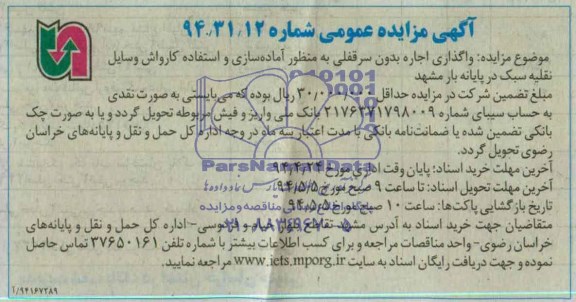 آگهی مزایده عمومی شماره ۹۴،۳۱،۱۲
موضوع مزایده: واگذاری اجاره بدون سرقفلی به منظور آماده‌سازی و استفاده کارواش وسایل
نقلیه سبک در پایانه بار مشهد
مبلغ تضمین شرکت در مزایده حداقل ۳۰,۰۰۰,۰۰۰ ریال بوده که می‌بایستی به صورت نقدی
به حساب سیبای شماره ۲۱۷۶۲۷۱۷۹۸۰۰۹ بانک ملی واریز و فیش مربوطه تحویل گردد و یا به صورت چک
بانکی تضمین شده یا ضمانت‌نامه بانکی با مدت اعتبار سه ماه در وجه اداره کل حمل و نقل و پایانه‌های خراسان
رضوی تحویل گردد.
آخرین مهلت خرید اسناد: پایان وقت اداری مورخ ۹۴,۴,۲۴
آخرین مهلت تحویل اسناد: تا ساعت ۹ صبح مورخ ۹۴,۵,۵
تاریخ بازگشایی پاکت‌ها: ساعت ۱۰ صبح مورخ ۹۴,۵,۵
متقاضیان جهت خرید اسناد به آدرس مشهد، تقاطع بلوار و فردوسی- اداره کل حمل و نقل و پایانه‌های
خراسان رضوی- واحد مناقصات مراجعه و برای کسب اطلاعات بیشتر با شماره تلفن ۳۷۶۵۰۱۶۱ تماس حاصل
نموده و جهت دریافت رایگان اسناد به سایت www.iets.mporg.ir مراجعه نمایید.
۹۴۱۶۷۳۸۹/آ
ParsNamadData
۰۲۱-۸۸۳۴۹۶۷۰-۵